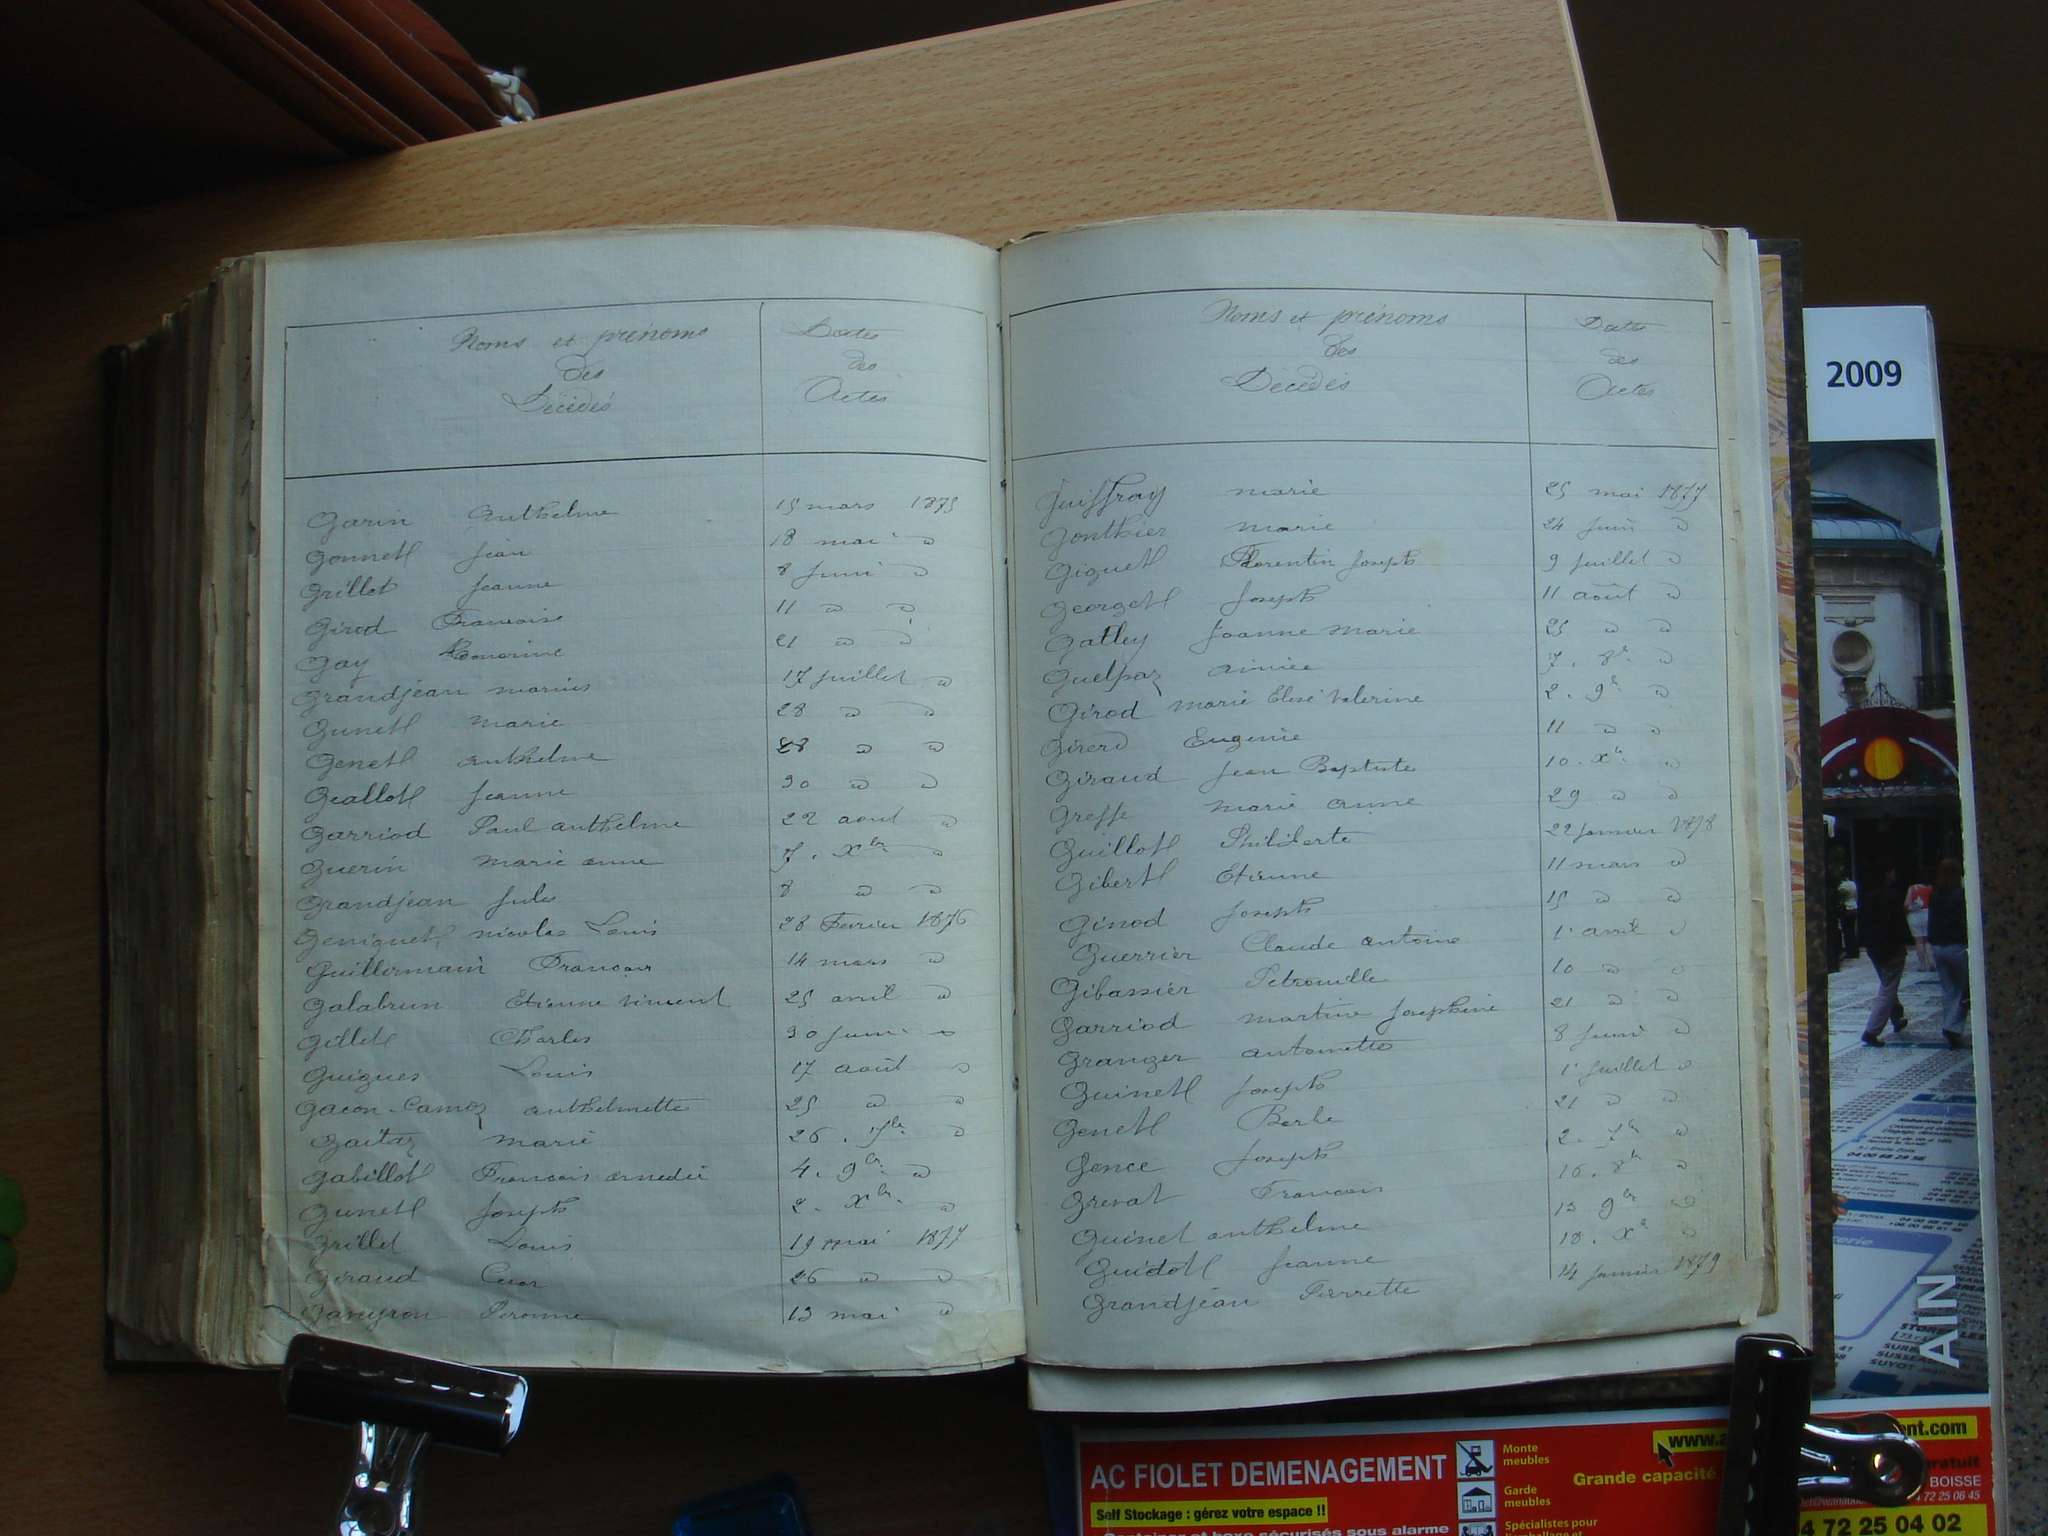 Noms et prénoms
des
Décédés
Dates
des
Actes
Garin Anthelme 15 mars 1875
Gonnet Jean 18 mai "
Grillet Jeanne 8 Juin "
Girod Francoise 11 " "
Gay Honorine 21 " "
Grandjean marius 17 Juillet "
Gunet marie 28 " "
Genet anthelme 28 " "
Geallot Jeanne 30 " "
Garriod Paul anthelme 22 aout "
Guerin marie anne 7. Xbr "
Grandjean Jules 8 " "
Geniquet nicolas Louis 28 Fevrier 1876
Guillermain Francois 14 mars "
Galabrun Etienne vincent 25 avril "
Gillet Charles 30 Juin "
Guigues Louis 17 août "
Gacon-Camoz anthelmette 25 " "
Gaitaz marie 26. 7br "
Gabillot Francois amedée 4. 9br "
Gunet Joseph 2. Xbr. "
Grillet Louis 19 mai 1877
Giraud 26 " "
Ganeyron Peronne 13 mai "
Noms et prénoms
des
Décédés
Dates
des
Actes
Guiffray marie 25 mai 1877
Gonthier marie 24 Juin "
Giguet Florentin Joseph 9 Juillet "
Georget Joseph 11 août "
Gatley Joanne Marie 25 " "
Guelpaz aimée 7. 8r. "
Girod Marie Elise Valerine 2. 9r "
Girerd Eugenie 11 " "
Giraud Jean Baptiste 10. Xr. "
Greffe marie anne 29 " "
Guillot Philiberte 22 Janvier 1878
Gibert Etienne 11 mars "
Ginod Joseph 15 " "
Guerrier Claude antoine 1r avril "
Gibassier Petronille 10 " "
Garriod martine Josephine 21 " "
Granger antoinette 8 Juin "
Guinet Joseph 1r Juillet "
Genet Barbe 21 " "
Gence Joseph 2. 7br "
Grenat Francois 16. 8br "
Guinet anthelme 13 9br "
Guidot Jeanne 18. Xr "
Grandjean Pierrette 14 Janvier 1879
2009
AIN
AC FIOLET DEMENAGEMENT
Self Stockage : gérez votre espace !!
Monte
meubles
Garde
meubles
Spécialistes pour
Grande capacité
www.
nt.com
gratuit
BOISSE
4 72 25 06 45
4 72 25 04 02